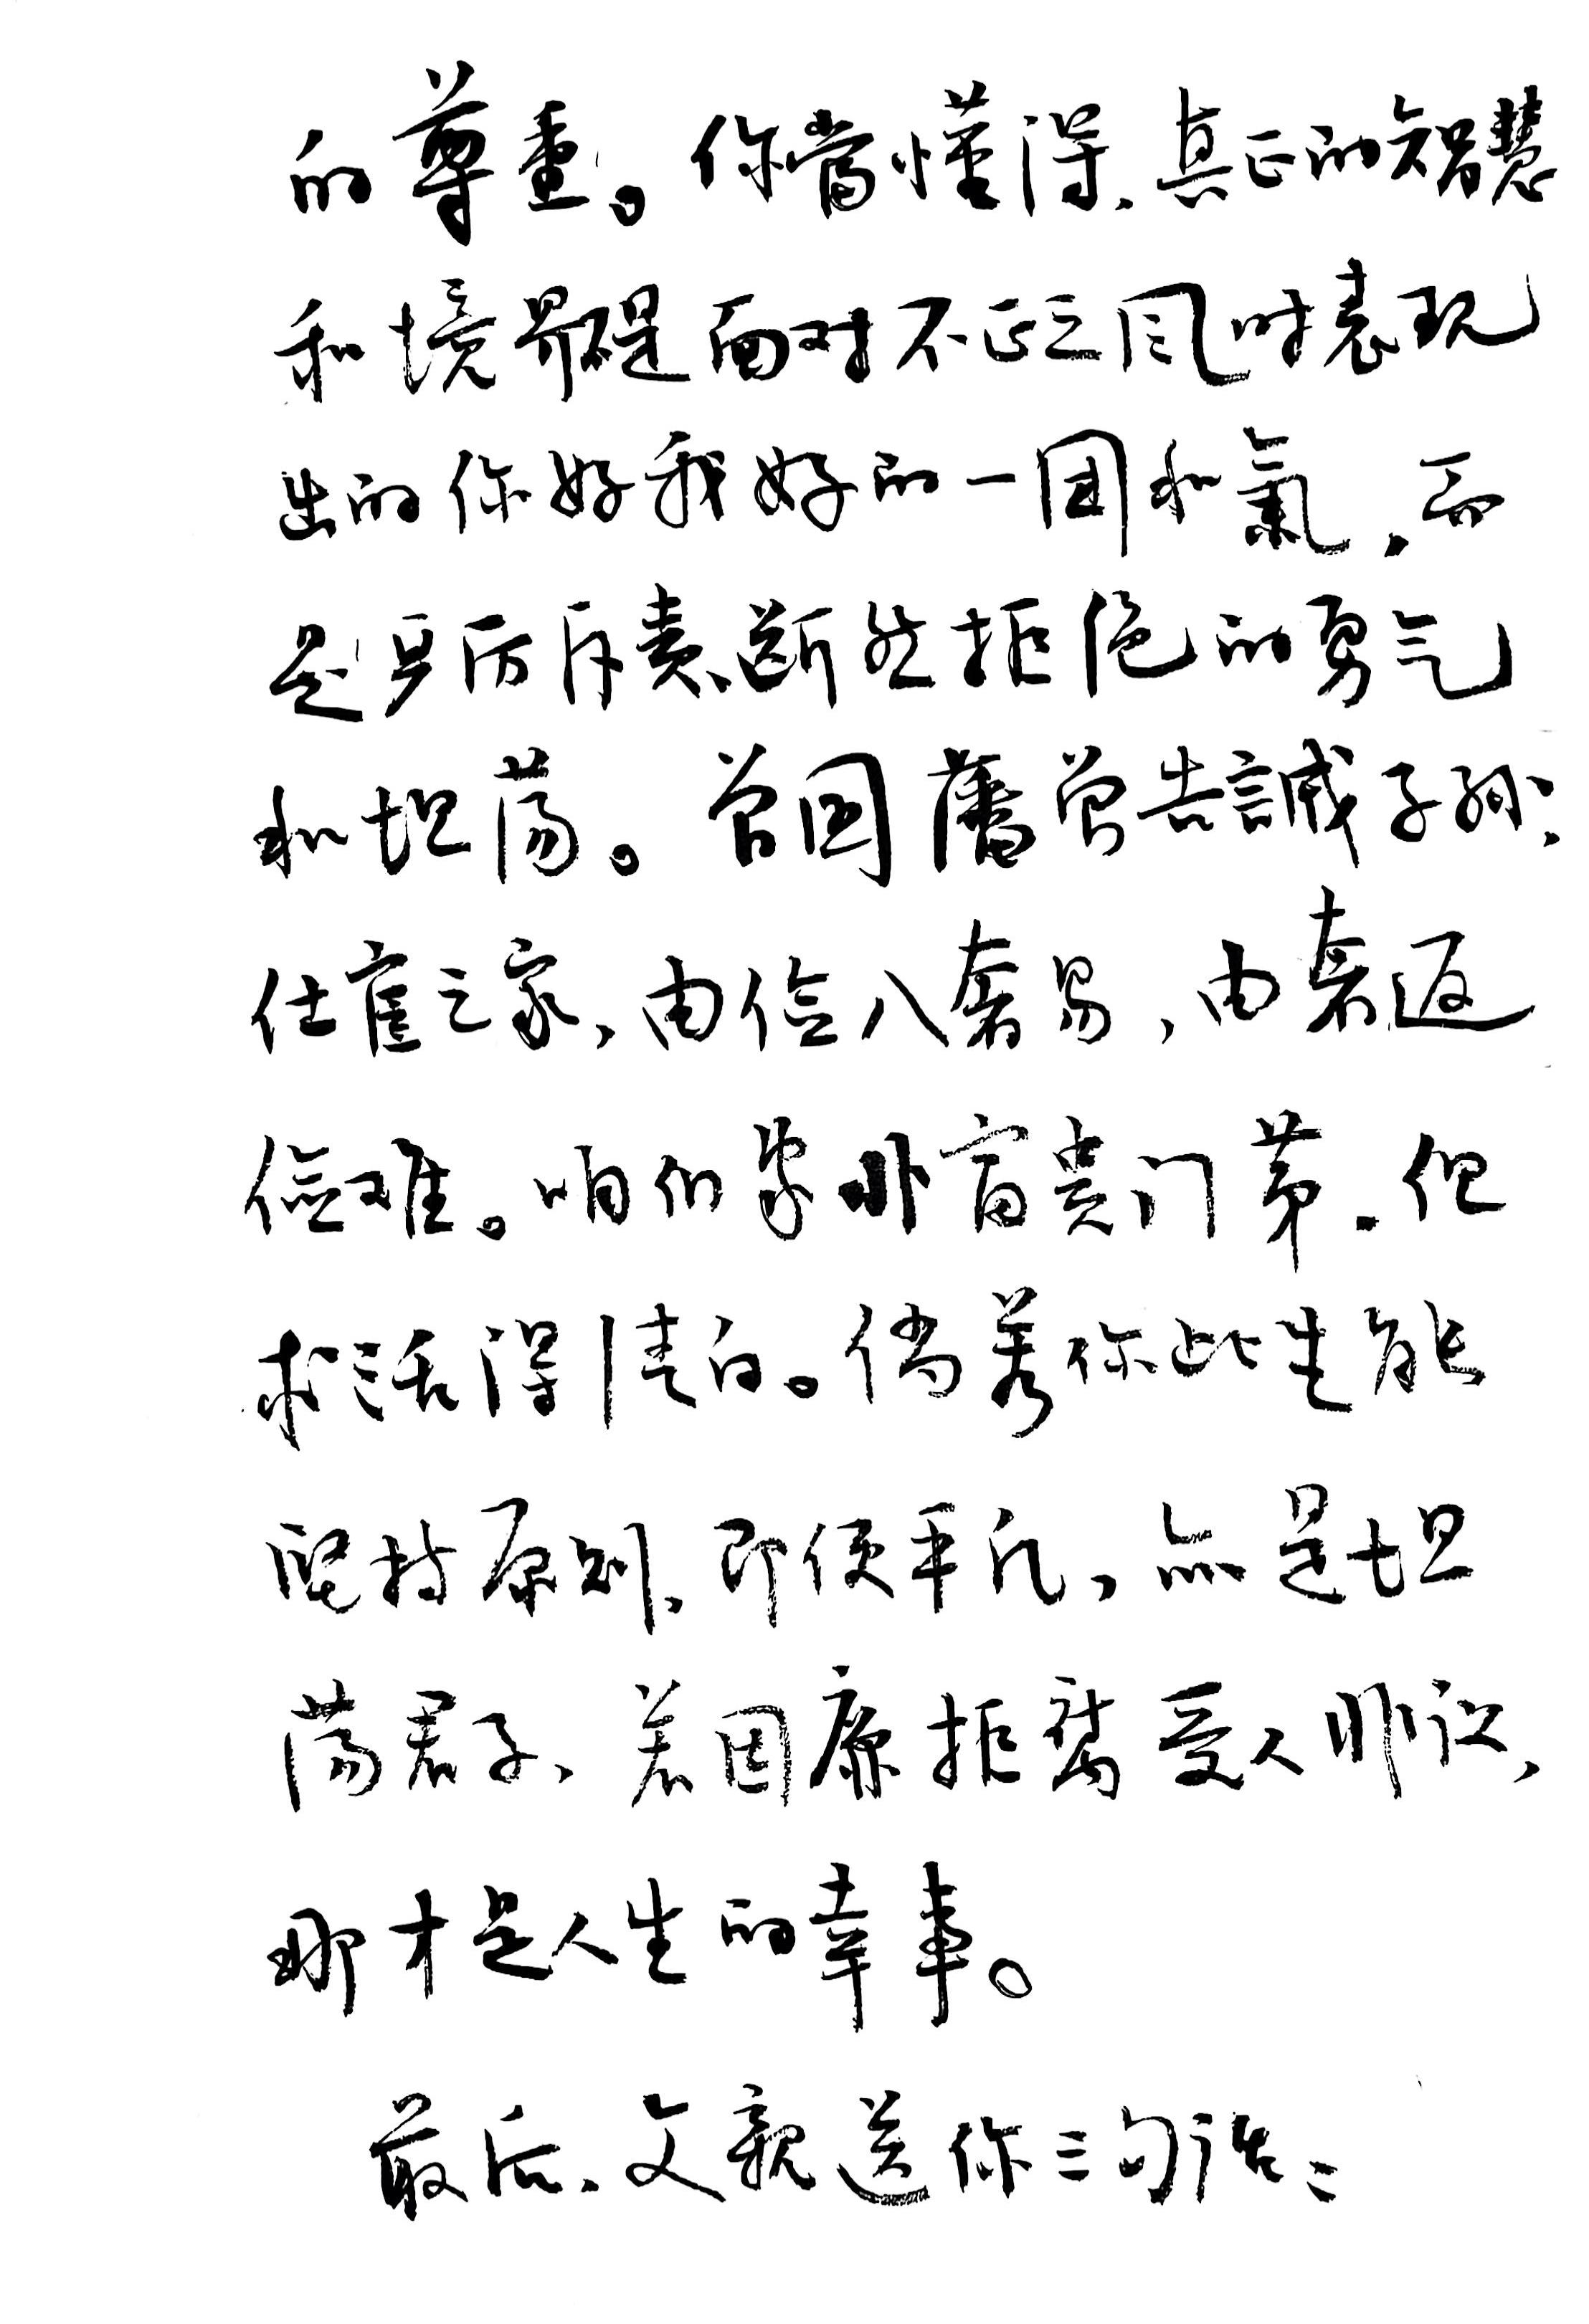 的尊重。你當懂得、真正的智慧
和境界不是面对不正之风时表现
出的你好我好的一团和氣，而
是严厉斥责、断然拒绝的勇气
和坦荡。曾国藩曾告誡子孙：
仕宦之家，由俭入奢易，由奢返
俭难。咱们家非富贵门第，但
求活得清白。倘若你此生能
坚持原则、即便平凡，亦是坦
荡君子、若因廉拒腐受人非议，
那才是人生的幸事。
最后、父親送你三句话：